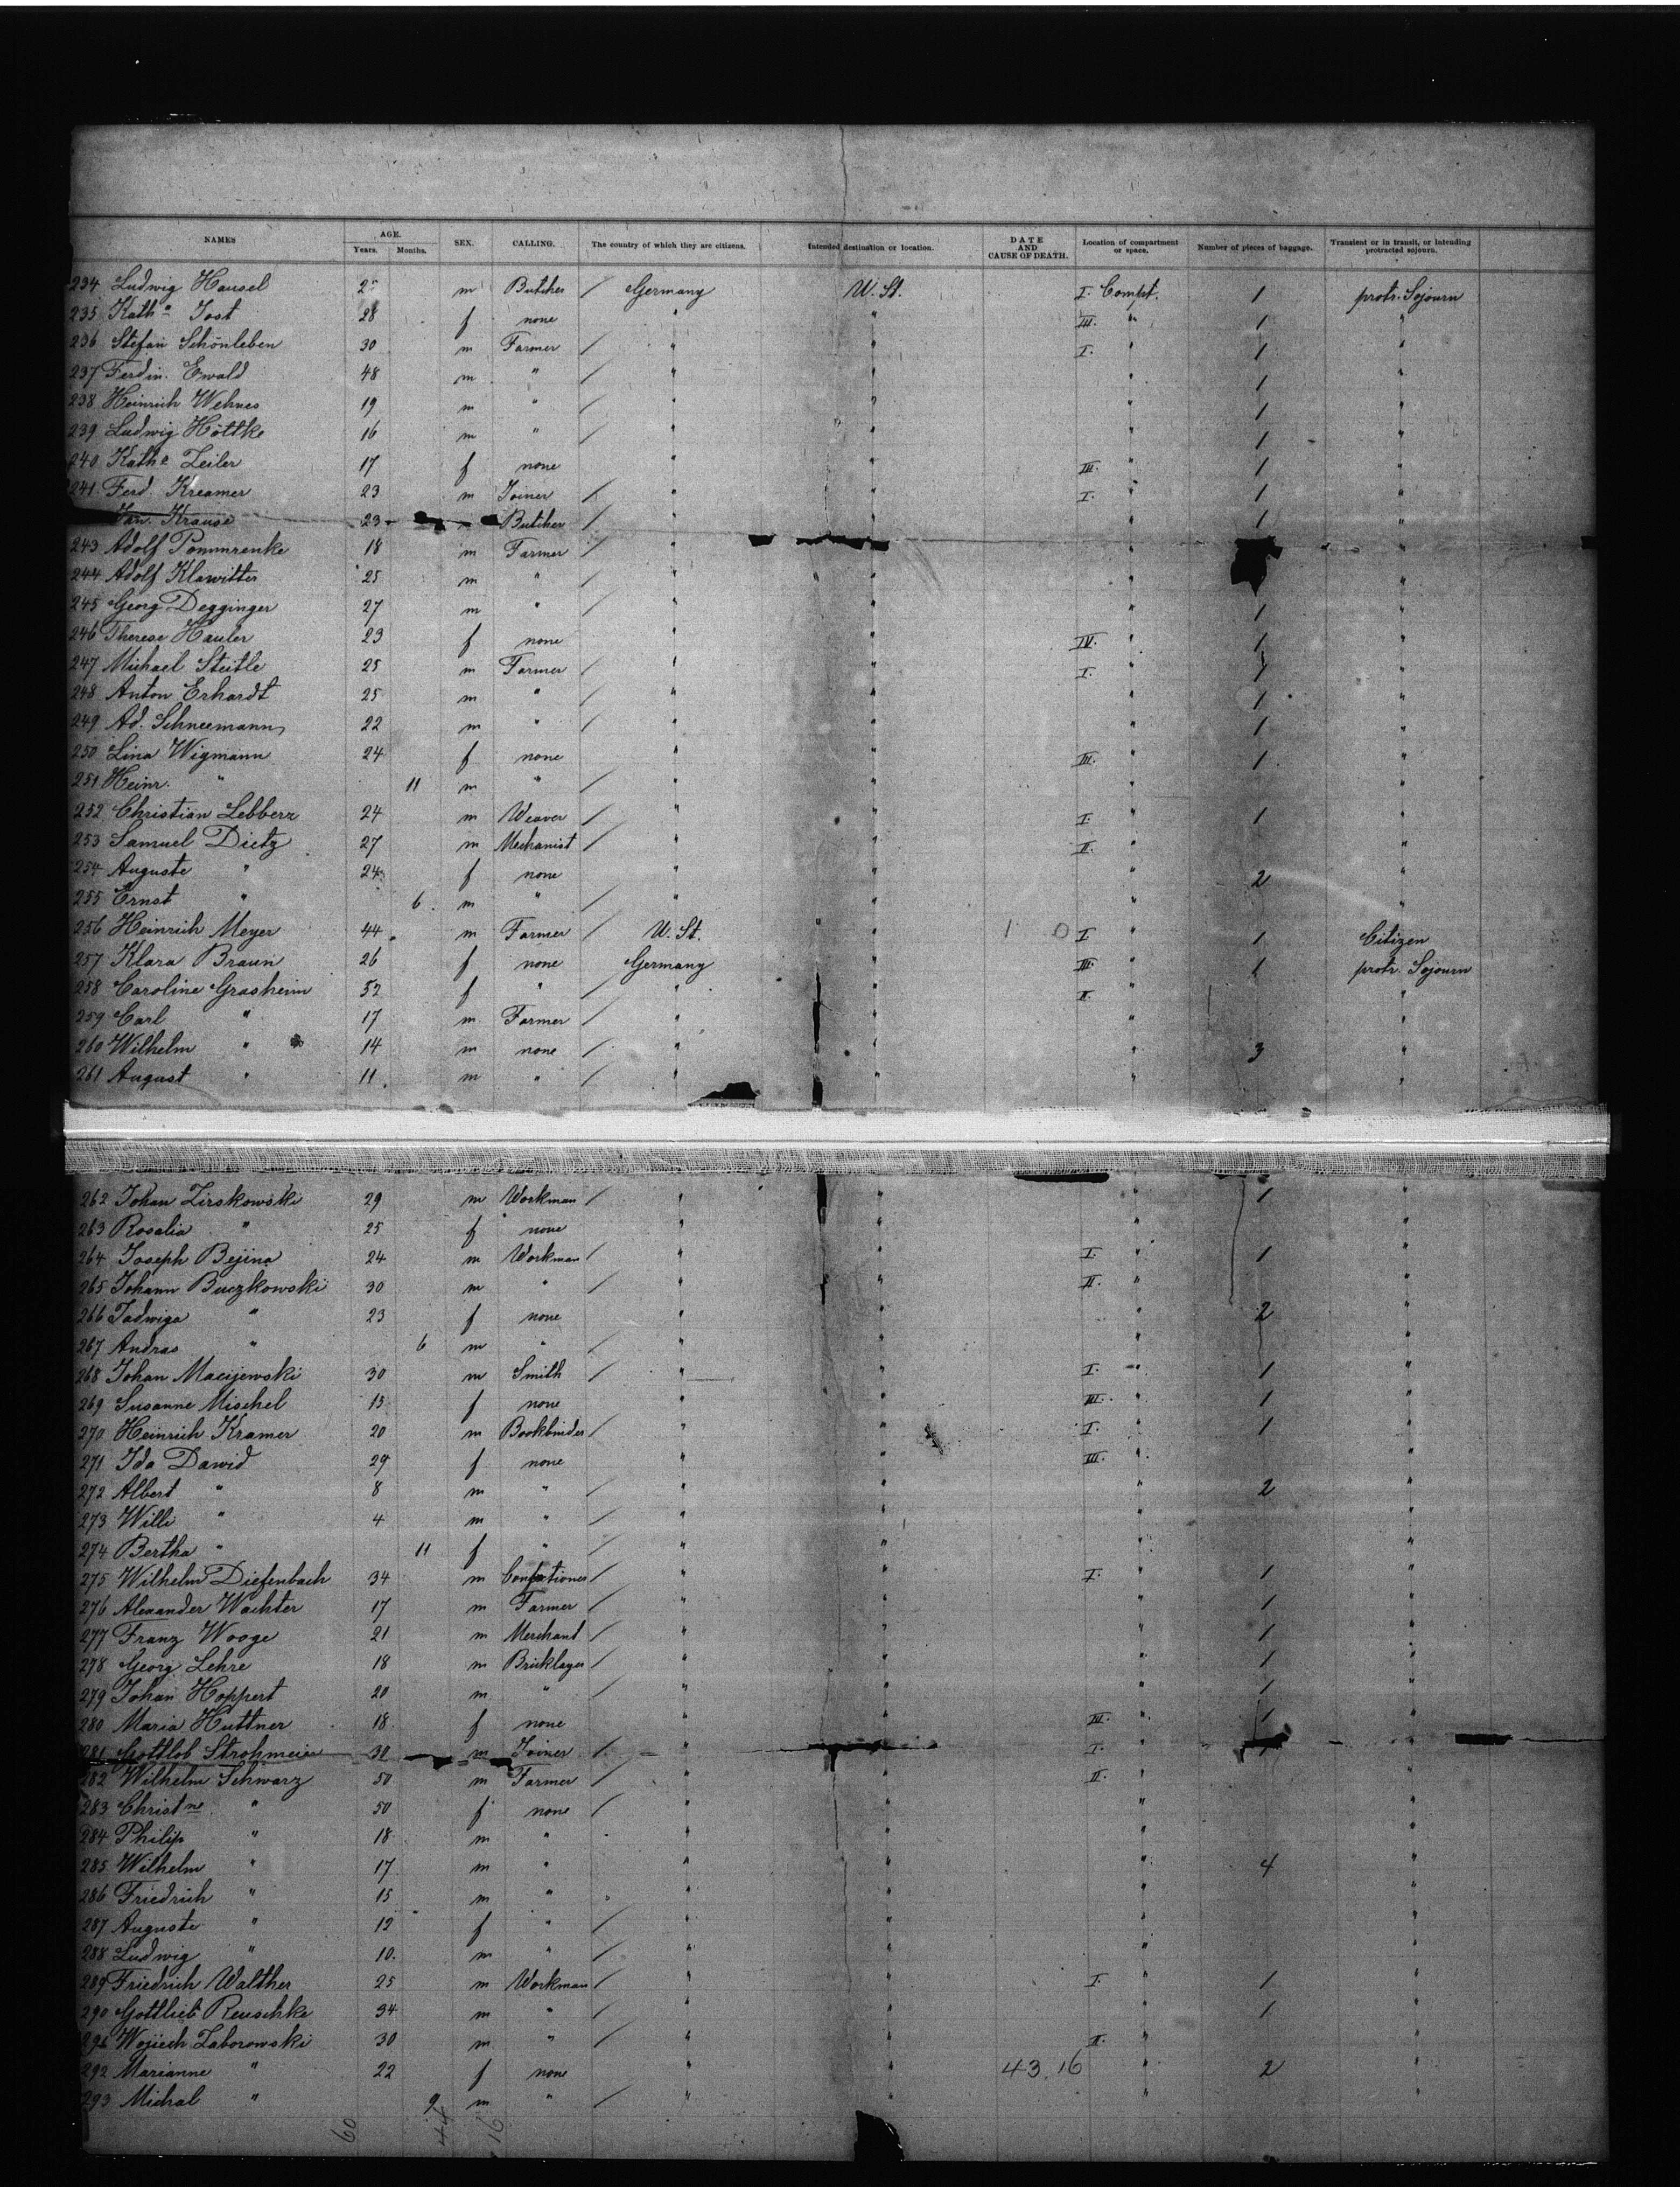 NAMES AGE. Years. Months. SEX. CALLING. The country of which they are citizens. Intended destination or location. DATE AND CAUSE OF DEATH. Location of compartment or space. Number of pieces of baggage. Transient or in transit, or intending protracted sojourn.
234 Ludwig Hausel m Butcher / Germany U. St. I. Compt. 1 protr. Sojourn
235 Kath.a Jost 28 f none " " III. " 1 "
236 Stefan Schönleben 30 m Farmer / " " I. " 1 "
237 Ferdin. Ewald 48 m " / " " " 1 "
238 Heinrich Wehnes 19 m " / " " " 1 "
239 Ludwig Höttke 16 m " / " " " 1 "
240 Kath.a Zeiler 17 f none " " III. " 1 "
241 Ferd. Kreamer 23 m Joiner / " " I. " 1 "
Krause 23 m Butcher / " " " 1 "
243 Adolf Pommrenke 18 m Farmer / " " " "
244 Adolf Klawitter 25 m " / " " " "
245 Georg Degginger 27 m " / " " " 1 "
246 Therese Hauler 23 f none " " IV. " 1 "
247 Michael Steitle 25 m Farmer / " " I. " 1 "
248 Anton Erhardt 25 m " / " " " 1 "
249 Ad. Schneemann 22 m " / " " " 1 "
250 Lina Wigmann 24 f none " " III. " 1 "
251 Heinr. " 11 m " / " " " "
252 Christian Lebberz 24 m Weaver / " " I. " 1 "
253 Samuel Dietz 27 m Mechanist / " " II. " "
254 Auguste " 24 f none " " " 2 "
255 Ernst " 6 m " / " " " "
256 Heinrich Meyer 44 m Farmer / U. St. " 1 0 I " 1 Citizen
257 Klara Braun 26 f none Germany " III. " 1 protr. Sojourn
258 Caroline Grasheim 52 f " / " " II. " "
259 Carl " 17 m Farmer / " " " "
260 Wilhelm " 14 m none / " " " 3 "
261 August " 11 m " / " " " "
262 Johan Zirskowski 29 m Workman / " " " 1 "
263 Rosalia " 25 f none " " " "
264 Joseph Bejina 24 m Workman / " " I. " 1 "
265 Johann Buczkowski 30 m " / " " II. " "
266 Jadwiga " 23 f none " " " 2 "
267 Andras " 6 m " / " " " "
268 Johan Macijewski 30 m Smith / " " I. " 1 "
269 Susanne Mischel 15 f none " " III. " 1 "
270 Heinrich Kramer 20 m Bookbinder / " " I. " 1 "
271 Ida Dawid 29 f none " " III. " "
272 Albert " 8 m " / " " " 2 "
273 Willi " 4 m " / " " " "
274 Bertha " 11 f " / " " " "
275 Wilhelm Diefenbach 34 m Confectioner / " " I. " 1 "
276 Alexander Wachter 17 m Farmer / " " " 1 "
277 Franz Wooge 21 m Merchant / " " " 1 "
278 Georg Lehre 18 m Bricklayer / " " " 1 "
279 Johan Hoppert 20 m " / " " " 1 "
280 Maria Huttner 18 f none " " III. " 1 "
281 Gottlob Strohmeier m Joiner / " " I. " "
282 Wilhelm Schwarz 50 m Farmer / " " II. " "
283 Christ.ne " 50 f none / " " " "
284 Philip " 18 m " " " " "
285 Wilhelm " 17 m " " " " 4 "
286 Friedrich " 15 m " " " " "
287 Auguste " 12 f " / " " " "
288 Ludwig " 10 m " / " " " "
289 Friedrich Walther 25 m Workman / " " I. " 1 "
290 Gottlieb Reuschke 34 m " / " " " 1 "
291 Wojiech Zaborowski 30 m " / " " II. " "
292 Marianne " 22 f none " " 43 16 " 2 "
293 Michal " 9 m " / " " " "
60 44 16